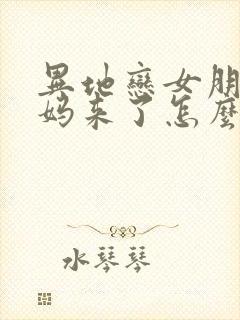 異地戀女朋
媽來了怎麼
水琴琴